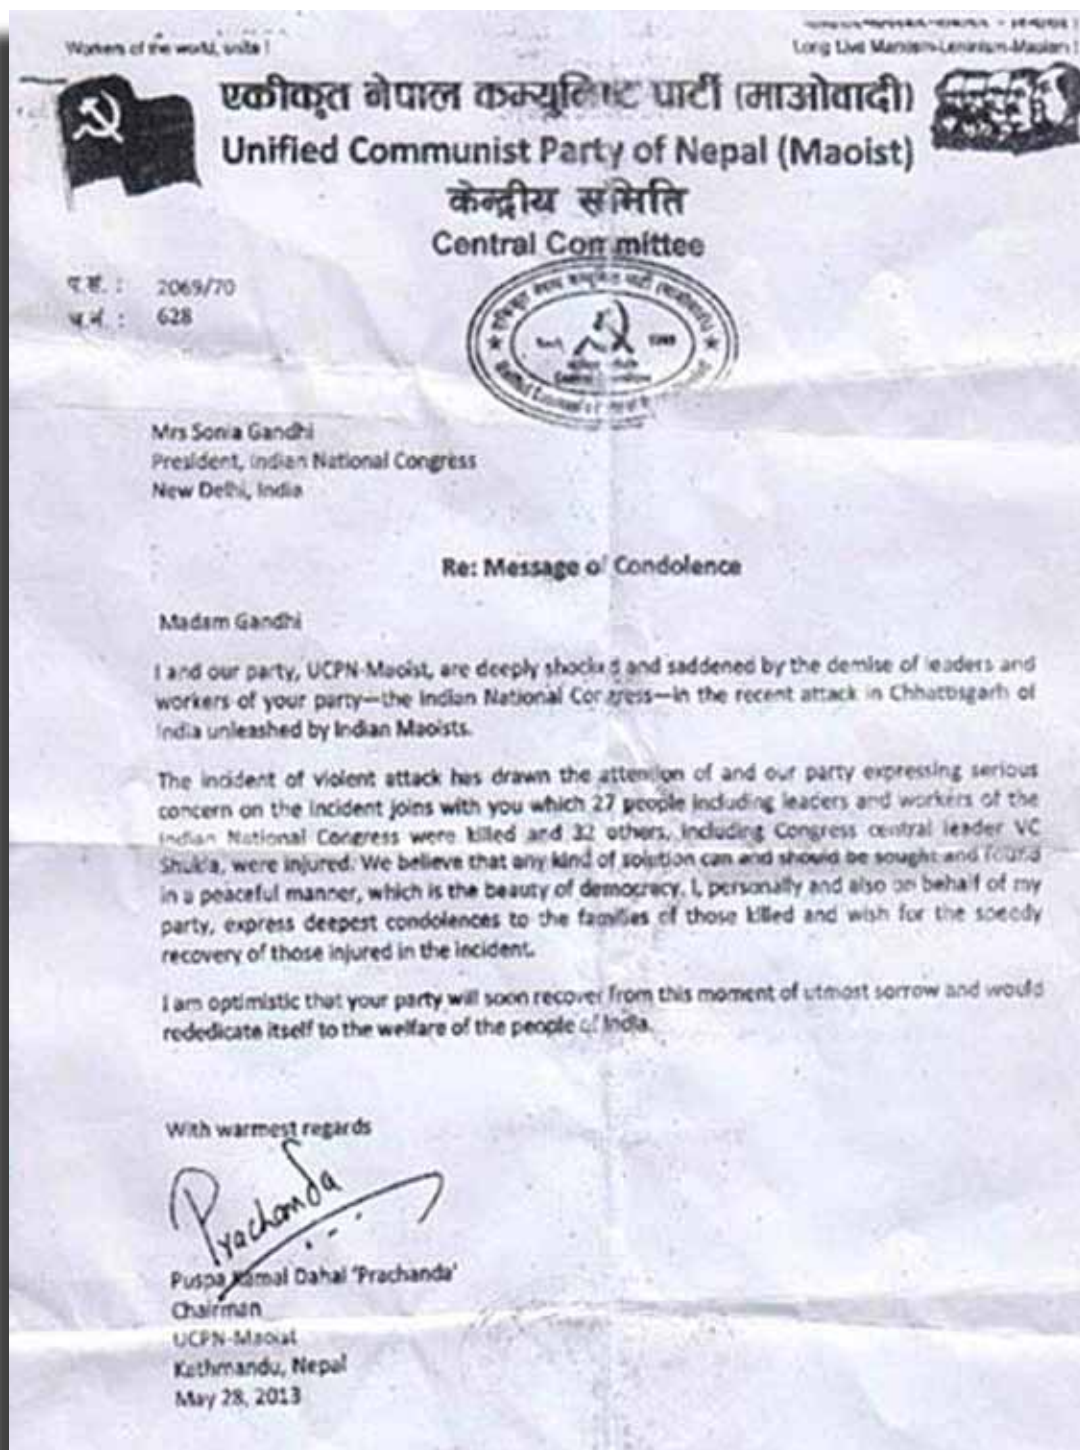 Workers of the world, unite !
Long Live Marxism-Leninism-Maoism !
एकीकृत नेपाल कम्युनिष्ट पार्टी (माओवादी)
Unified Communist Party of Nepal (Maoist)
केन्द्रीय समिति
Central Committee
प.सं. : 2069/70
च.नं. : 628
Mrs Sonia Gandhi
President, Indian National Congress
New Delhi, India
Re: Message of Condolence
Madam Gandhi
I and our party, UCPN-Maoist, are deeply shocked and saddened by the demise of leaders and
workers of your party—the Indian National Congress—in the recent attack in Chhattisgarh of
India unleashed by Indian Maoists.
The incident of violent attack has drawn the attention of and our party expressing serious
concern on the incident joins with you which 27 people including leaders and workers of the
Indian National Congress were killed and 32 others, including Congress central leader VC
Shukla, were injured. We believe that any kind of solution can and should be sought and found
in a peaceful manner, which is the beauty of democracy. I, personally and also on behalf of my
party, express deepest condolences to the families of those killed and wish for the speedy
recovery of those injured in the incident.
I am optimistic that your party will soon recover from this moment of utmost sorrow and would
rededicate itself to the welfare of the people of India.
With warmest regards
Prachanda
Puspa Kamal Dahal 'Prachanda'
Chairman
UCPN-Maoist
Kathmandu, Nepal
May 28, 2013